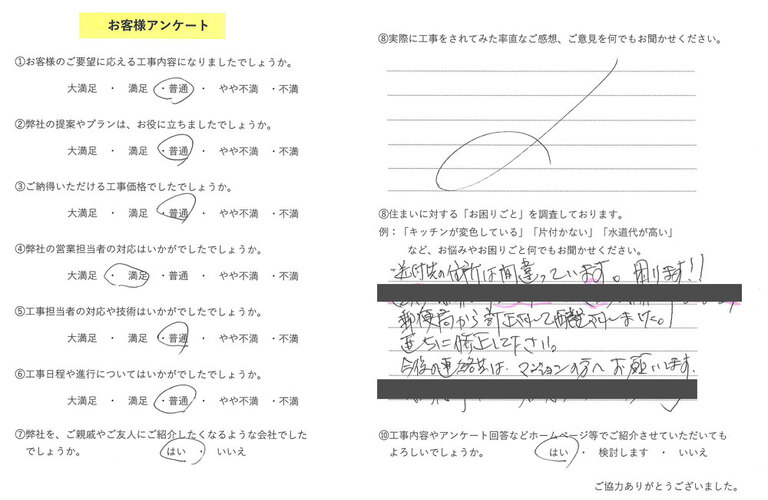 お客様アンケート
①お客様のご要望に応える工事内容になりましたでしょうか。
大満足 ・ 満足 ・普通 ・ やや不満 ・不満
②弊社の提案やプランは、お役に立ちましたでしょうか。
大満足 ・ 満足 ・普通 ・ やや不満 ・不満
③ご納得いただける工事価格でしたでしょうか。
大満足 ・ 満足 ・普通 ・ やや不満 ・不満
④弊社の営業担当者の対応はいかがでしたでしょうか。
大満足 ・ 満足 ・普通 ・ やや不満 ・不満
⑤工事担当者の対応や技術はいかがでしたでしょうか。
大満足 ・ 満足 ・普通 ・ やや不満 ・不満
⑥工事日程や進行についてはいかがでしたでしょうか。
大満足 ・ 満足 ・普通 ・ やや不満 ・不満
⑦弊社を、ご親戚やご友人にご紹介したくなるような会社でした
でしょうか。 はい ・ いいえ
⑧実際に工事をされてみた率直なご感想、ご意見を何でもお聞かせください。
⑧住まいに対する「お困りごと」を調査しております。
例：「キッチンが変色している」「片付かない」「水道代が高い」
など、お悩みやお困りごと何でもお聞かせください。
送付先の住所は間違っています。困ります!!
郵便局から訂正
直ちに修正して下さい。
今後の連絡先は、マンションの方へお願います。
⑩工事内容やアンケート回答などホームページ等でご紹介させていただいても
よろしいでしょうか。 はい ・ 検討します ・ いいえ
ご協力ありがとうございました。